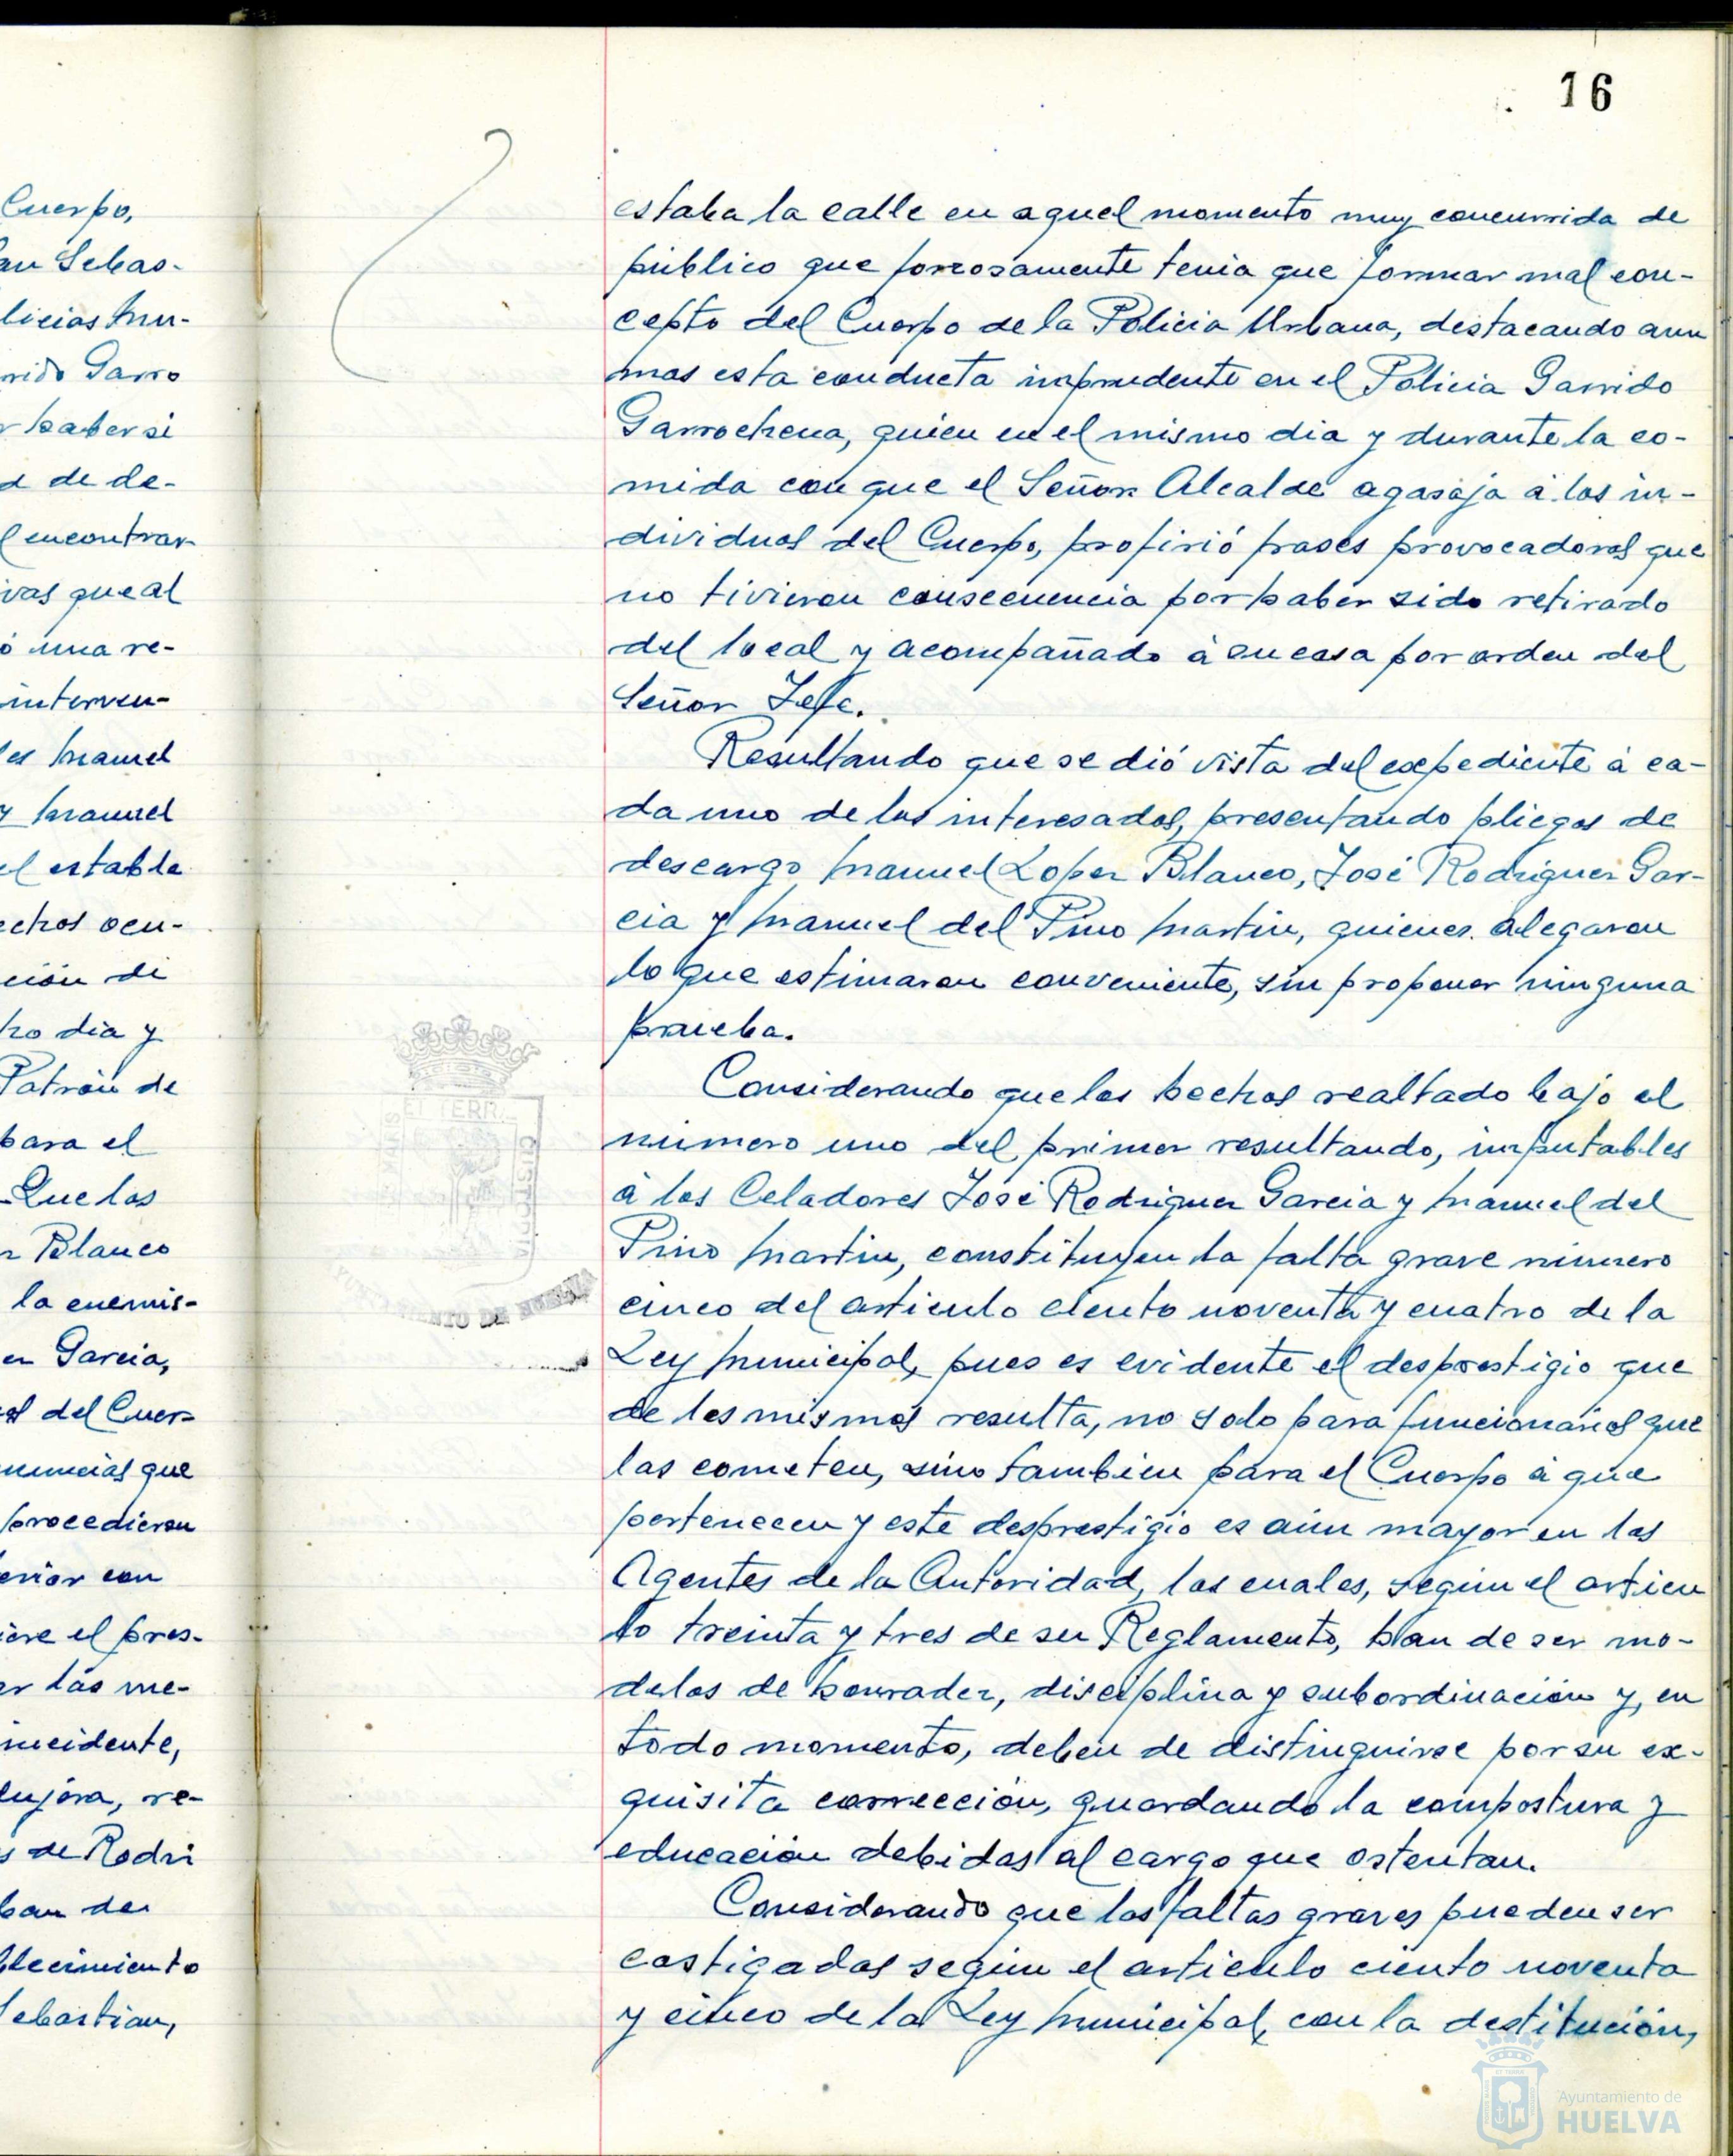 Cuerpo,
an Sebas-
licias Mu-
rrido Garro
r haber si
d de de-
l encontrar
ivas que al
ó una re-
interven-
les Manuel
y Manuel
el estable
echos ocu-
ción di
ho dia y
Patrón de
para el
Que los
z Blanco
la enemis-
ez Garcia,
al del Cuer-
nuncias que
procedieron
erior con
iere el pres-
er las me-
incidente,
dujera, re-
s de Rodri
ban de
blecimiento
Sebastian,
16
estaba la calle en aquel momento muy concurrida de
público que forzosamente tenia que formar mal con-
cepto del Cuerpo de la Policia Urbana, destacando aun
mas esta conducta imprudente en el Policia Garrido
Garrochena, quien en el mismo dia y durante la co-
mida con que el Señor Alcalde agasaja á los in-
dividuos del Cuerpo, profirió frases provocadoras que
no tivieron consecuencia por haber sido retirado
del local y acompañado á su casa por orden del
Señor Jefe.
Resultando que se dió vista del expediente á ca-
da uno de los interesados, presentando pliegos de
descargo Manuel Lopez Blanco, José Rodriguez Gar-
cia y Manuel del Pino Martin, quienes alegaron
lo que estimaron conveniente, sin proponer ninguna
prueba.
Considerando que los hechos realtado bajo el
numero uno del primer resultando, imputables
á los Celadores José Rodriguez Garcia y Manuel del
Pino Martin, constituyen la falta grave número
cinco del artículo ciento noventa y cuatro de la
Ley Municipal, pues es evidente el desprestigio que
de los mismos resulta, no solo para funcionarios que
las cometen, sino tambien para el Cuerpo á que
pertenecen y este desprestigio es aún mayor en los
Agentes de la Autoridad, los cuales, según el articu
lo treinta y tres de su Reglamento, han de ser mo-
delos de honradez, disciplina y subordinación y, en
todo momento, deben de distinguirse por su ex-
quisita corrección, guardando la compostura y
educación debidas al cargo que ostentan.
Considerando que las faltas graves pueden ser
castigadas según el articulo ciento noventa
y cinco de la Ley Municipal, con la destitución,
Ayuntamiento de
HUELVA